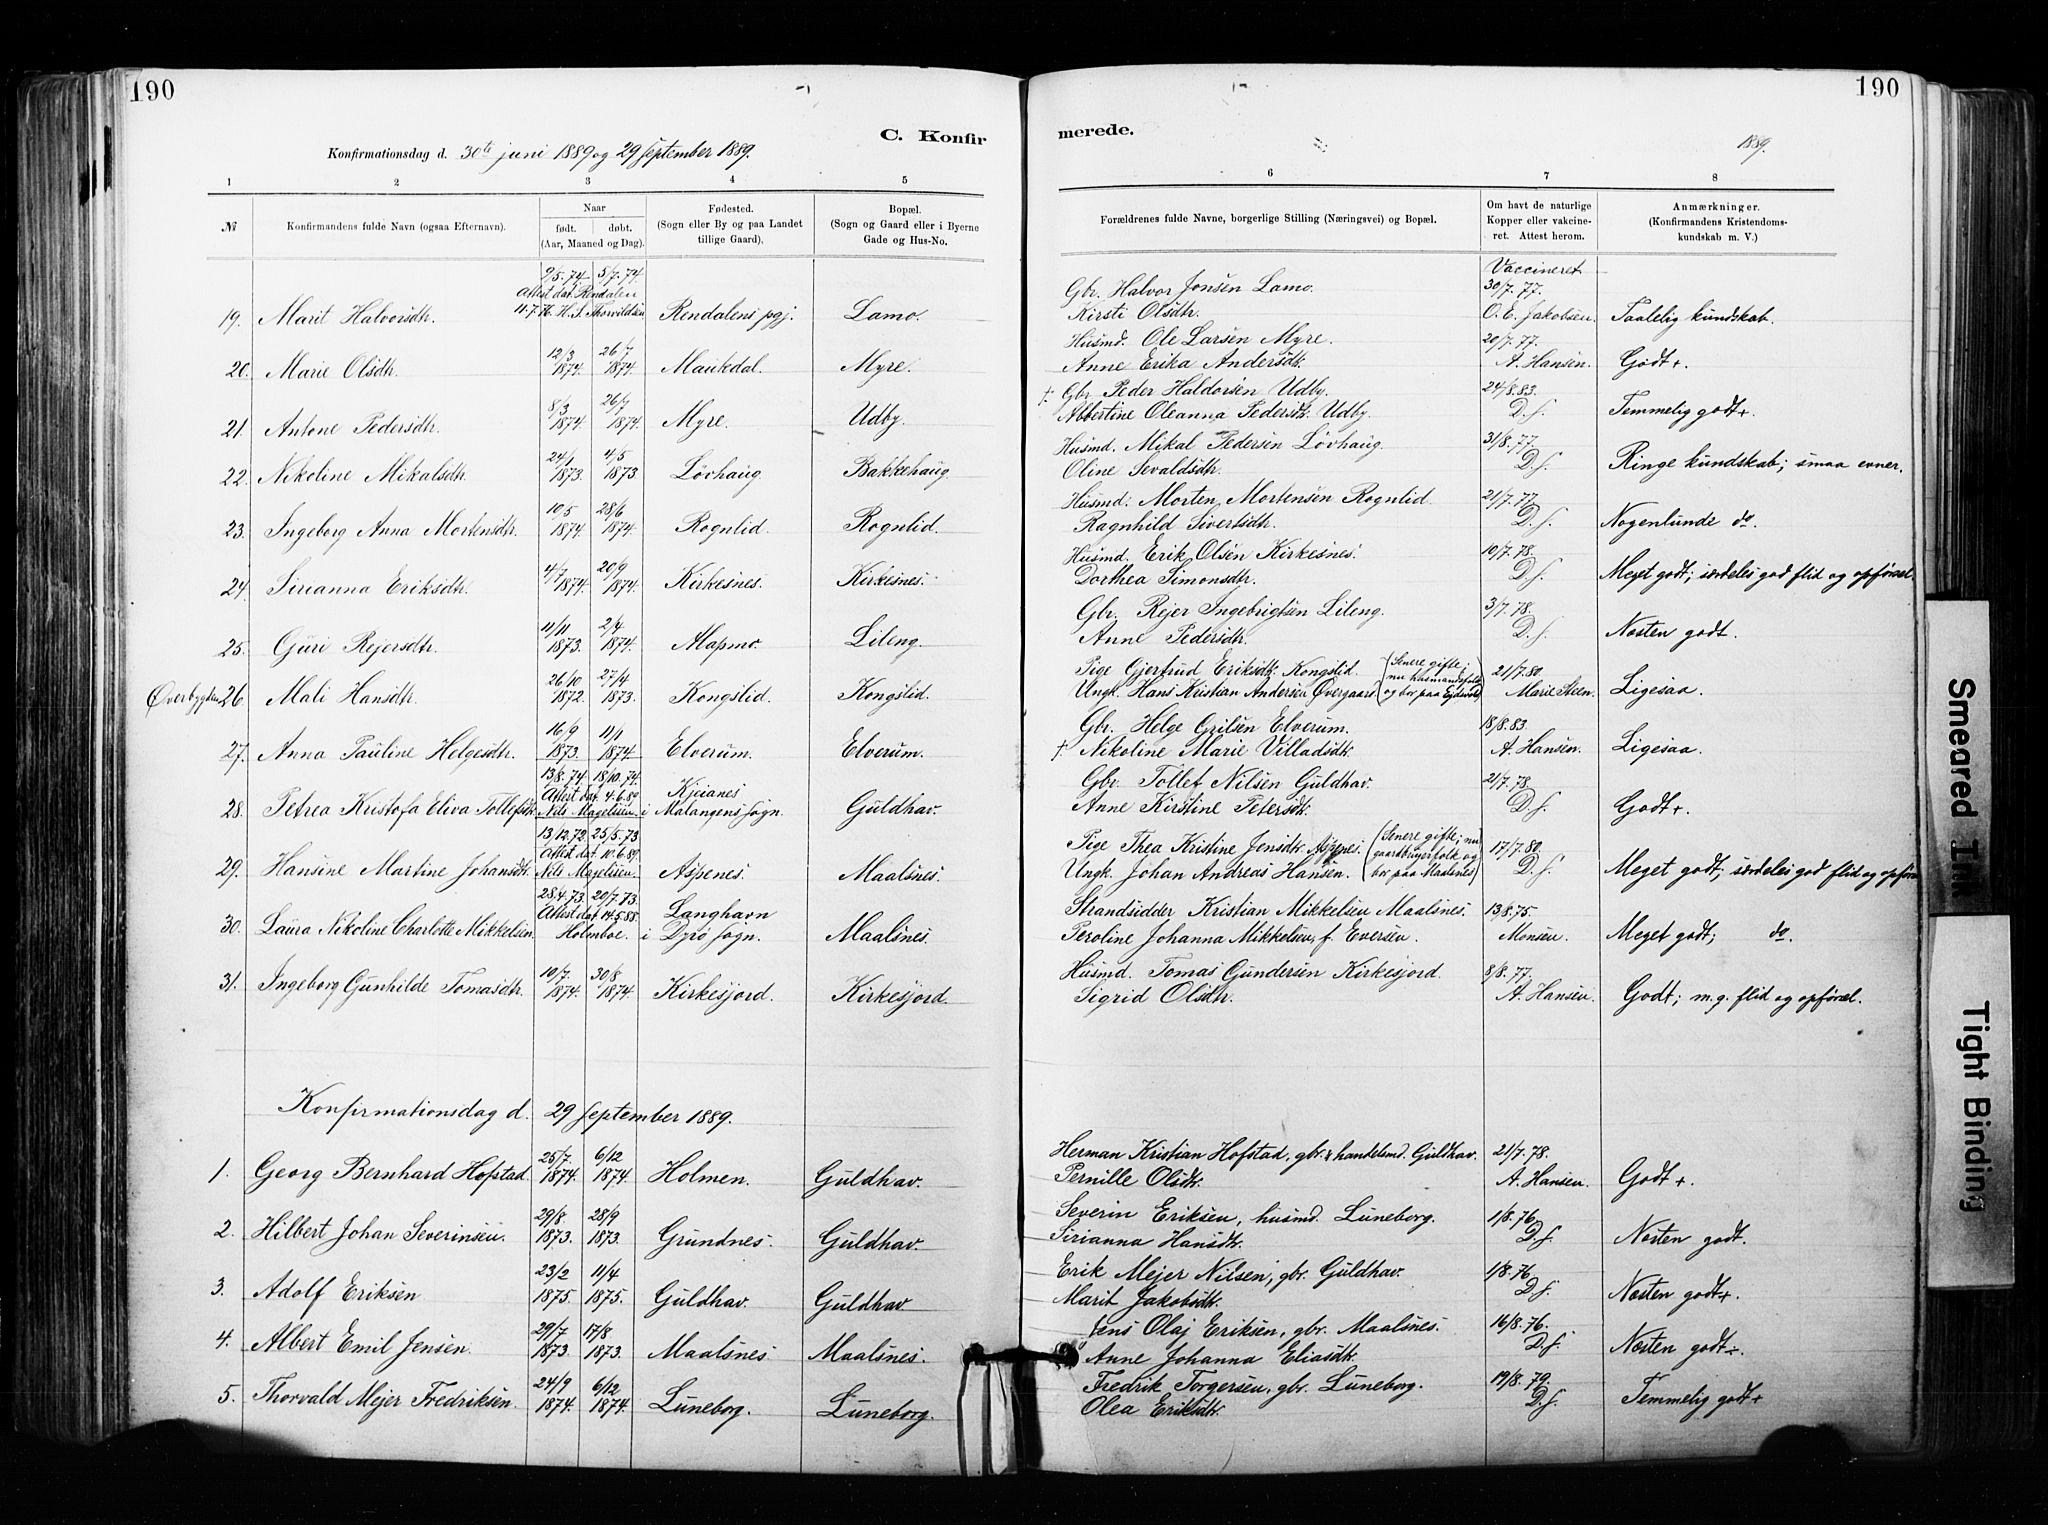 190
190
C. Konfir
merede.
Konfirmationsdag d. 30te juni 1889 og 29 september 1889.
1889.
1 2 3 4 5
6 7 8
№ Konfirmandens fulde Navn (ogsaa Efternavn). Naar født. døbt. (Aar, Maaned og Dag). Fødested. (Sogn eller By og paa Landet tillige Gaard). Bopæl. (Sogn og Gaard eller i Byerne Gade og Hus-No.
Forældrenes fulde Navne, borgerlige Stilling (Næringsvei) og Bopæl. Om havt de naturlige Kopper eller vakcineret. Attest herom. Anmærkninger. (Konfirmandens Kristendomskundskab m. V.)
19. Marit Halvorsdtr. 9/5.74. 5/7.74 Attest dat. Rendalen 11.7.76. H. J. Thorvildsen Rendalens pgj. Lamo. Gbr. Halvor Jonsen Lamo. Kirsti Olsdtr. Vaccineret 30/7.77. O. E. Jakobsen. Taalelig kundskab.
20. Marie Olsdtr. 12/3 1874. 26/7 1874. Maukdal. Myre. Husmd. Ole Larsen Myre. Anne Erika Andersdtr. 20/7.77. A. Hansen. Godt+.
21. Antone Pedersdtr. 8/3 1874. 26/7 1874. Myre. Udby. † Gbr Peder Haldorsen Udby. Abbertine Oleanna Pedersdtr. Udby. 24/8.83. D.s. Temmelig godt+.
22. Nikoline Mikalsdtr. 24/1 1873. 4/5 1873. Lövhaug. Bakkehaug. Husmd. Mikal Pedersen Lövhaug. Oline Sevaldsdtr. 31/8.77. D.s. Ringe kundskab; smaa evner.
23. Ingeborg Anna Mortensdtr. 10/5 1874. 28/6 1874. Rognlid. Rognlid. Husmd. Morten Mortensen Rognlid. Ragnhild Sivertsdtr. 21/7.77. D.s. Nogenlunde do.
24. Sirianna Eriksdtr. 4/7 1874. 20/9 1874. Kirkesnes. Kirkesnes. Husmd. Erik Olsen Kirkesnes. Dorthea Simonsdtr. 10/7.78. D.s. Meget godt; særdeles god flid og opførsel.
25. Guri Rejersdtr. 11/11 1873. 2/4 1874. Mapmo. Lileng. Gbr. Rejer Ingebrigtsen Lileng. Anne Pedersdtr. 3/7.78. D.s. Næsten godt.
Øverbygden 26. Mali Hansdtr. 26/10 1872. 27/4 1873. Kongslid. Kongslid. Pige Gjertrud Eriksdtr. Kongslid. Ungk. Hans Kristian Andersen Øvergaard (Senere gifte; nu husmandsfolk og bor paa Ejdsvold) 21/7.80. Marie Steen. Ligesaa.
27. Anna Pauline Helgesdtr. 16/9 1873. 11/1 1874. Elverum. Elverum. Gbr. Helge Grilsen Elverum. † Nikoline Marie Villadsdtr. 18/8.83. A. Hansen. Ligesaa.
28. Petrea Kristofa Eliva Tollefsdtr. 13/8.74. 18/10.74. Attest dat. 4.6.89 Nils Magelssen Kjeianes i Malangens sogn. Guldhav. Gbr. Tollef Nilsen Guldhav. Anne Kirstine Petersdtr. 21/7.78. D.s. Godt+.
29. Hansine Martine Johansdtr. 13/12.72. 25/5.73 Attest dat. 10.6.89. Nils Magelssen. Aspenes. Maalsnes. Pige Thea Kristine Jensdtr. Aspenes. Ungk. Johan Andreas Hansen. (Senere gifte; nu gaardbrugerfolk og bor paa Maalsnes) 17/7.80. D.s. Meget godt; særdeles god flid og opførsel
30. Laura Nikoline Charlotte Mikkelsen. 28/4.73. 20/7.73. Attest dat. 14.5.88. Holmboe. Langhavn i Dyrö sogn. Maalsnes. Strandsidder Kristian Mikkelsen Maalsnes. Peroline Johanna Mikkelsen, f. Eversen. 13/8.75. Monsen. Meget godt; do.
31. Ingeborg Gunhilde Tomasdtr. 10/7. 1874. 30/8 1874. Kirkesjord. Kirkesjord. Husmd. Tomas Gundersen Kirkesjord. Sigrid Olsdtr. 8/8.77. A. Hansen. Godt; m.g. flid og opførsel.
Konfirmationsdag d. 29 september 1889.
1. Georg Bernhard Hofstad. 25/7. 1874. 6/12 1874. Holmen. Guldhav. Herman Kristian Hofstad, gbr. & handelsmd. Guldhav. Pernille Olsdtr. 21/7.78. A. Hansen. Godt +.
2. Hilbert Johan Severinsen. 29/8. 1873. 28/9 1873. Grundnes. Guldhav. Severin Eriksen, husmd. Luneborg. Sirianna Hansdtr. 1/8.76. D.s. Næsten godt.
3. Adolf Eriksen 23/2 1875. 11/4 1875. Guldhav. Guldhav Erik Mejer Nilsen, gbr. Guldhav. Marit Jakobsdtr. 1/8.76. D.s. Næsten godt+.
4. Albert Emil Jensen. 29/7 1873. 17/8 1873. Maalsnes. Maalsnes. Jens Olaj Eriksen, gbr. Maalsnes. Anne Johanna Eliasdtr. 16/8.76. D.s. Næsten godt÷.
5. Thorvald Mejer Fredriksen. 24/9 1874. 6/12 1874. Luneborg. Luneborg. Fredrik Torgersen, gbr. Luneborg. Olea Eriksdtr. 19/8.79. D.s. Temmelig godt+
Smeared Ink
Tight Binding